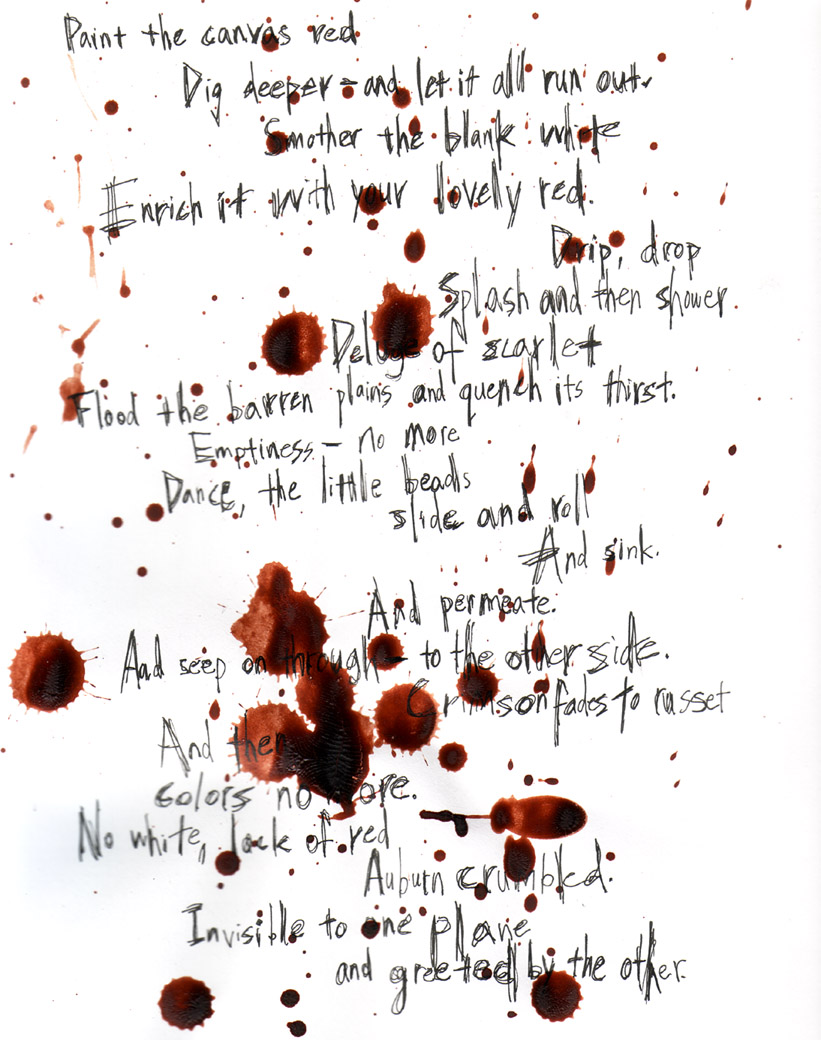 Paint the canvas red
Dig deeper - and let it all run out.
Smother the blank white
Enrich it with your lovely red.
Drip, drop
Splash and then shower.
Deluge of scarlet
Flood the barren plains and quench its thirst.
Emptiness - no more
Dance, the little beads
slide and roll
And sink.
And permeate.
And seep on through - to the other side.
Crimson fades to russet
And then
colors no more.
No white, lack of red
Auburn crumbled.
Invisible to one plane
and greeted by the other.